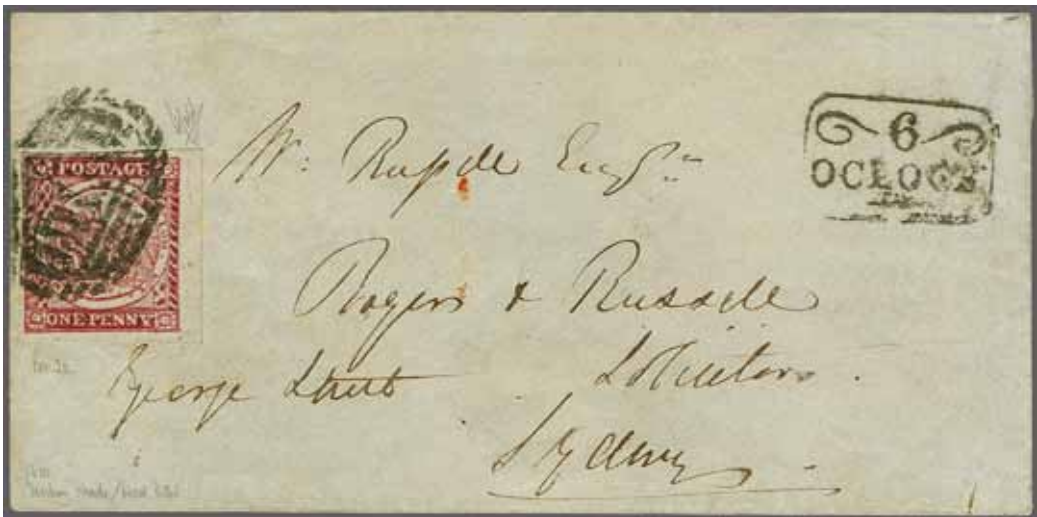 POSTAGE
ONE PENNY
6
OCLOCK
W: Esqr
Rogers & Russell
George Street Solicitors.
Sydney